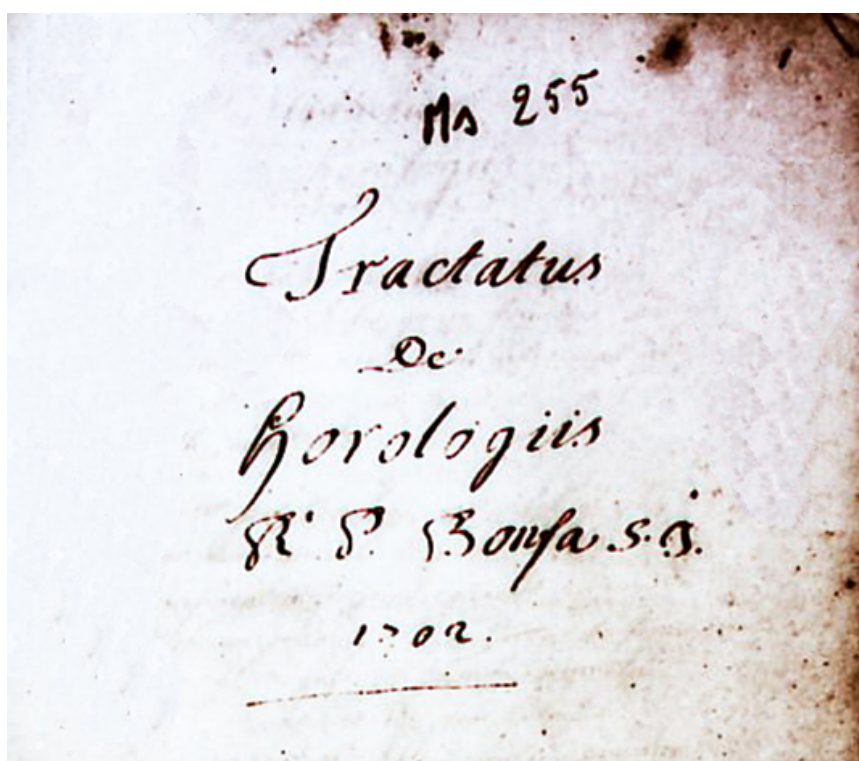 Ms 255
Tractatus
De
Horologiis
R. P. Bonfa S. J.
1702.